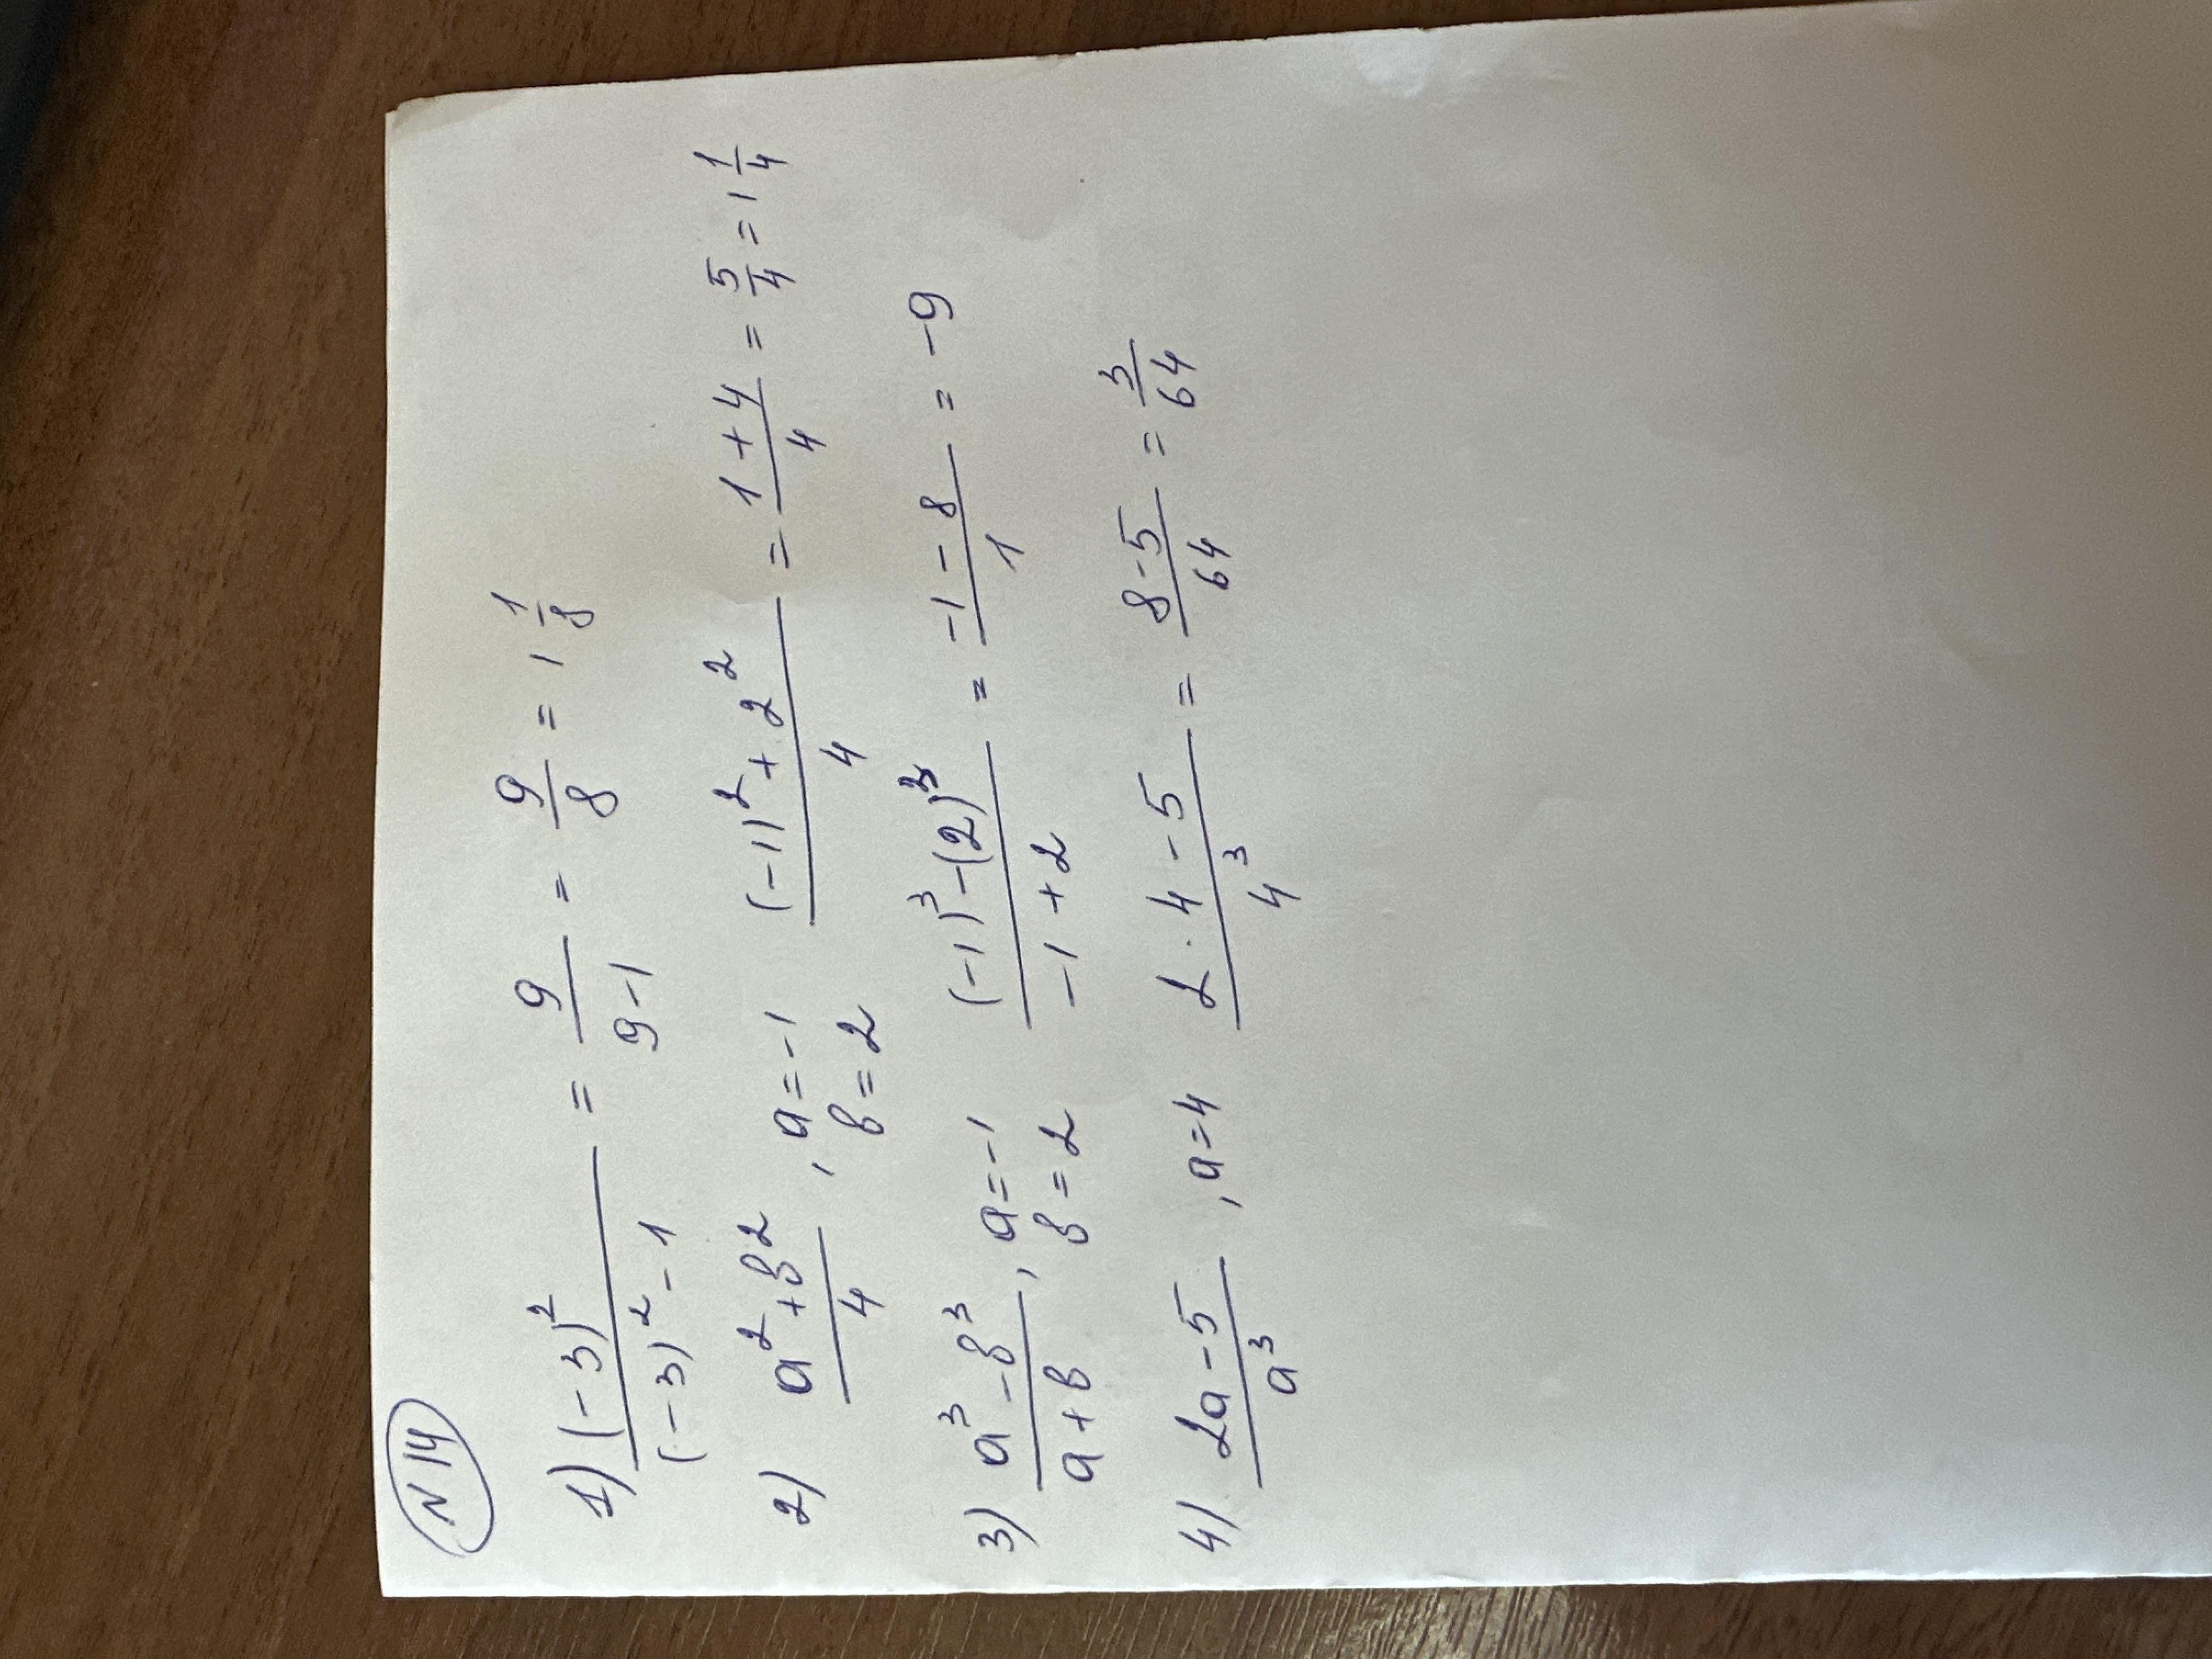 N 14
1) (-3)²/((-3)² - 1) = 9/(9-1) = 9/8 = 1 1/8
2) (a² + в²)/4, a = -1 в = 2 ((-1)² + 2²)/4 = (1 + 4)/4 = 5/4 = 1 1/4
3) (a³ - в³)/(a + в), a = -1 в = 2 ((-1)³ - (2)³)/(-1 + 2) = (-1 - 8)/1 = -9
4) (2a - 5)/a³, a = 4 (2 · 4 - 5)/4³ = (8 - 5)/64 = 3/64